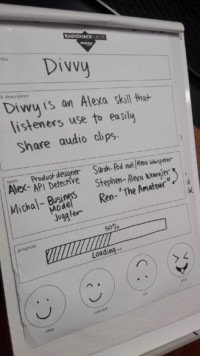 RADIOHACK
Divvy
Divvy is an Alexa skill that
listeners use to easily
share audio clips.
Alex- Product designer
API Detective
Michal- Business
Model
Juggler
Sarah- Pod nut/Alexa whisperer
Stephen- Alexa Wrangler
Ren- "The Amateur"
progress
50%
Loading...